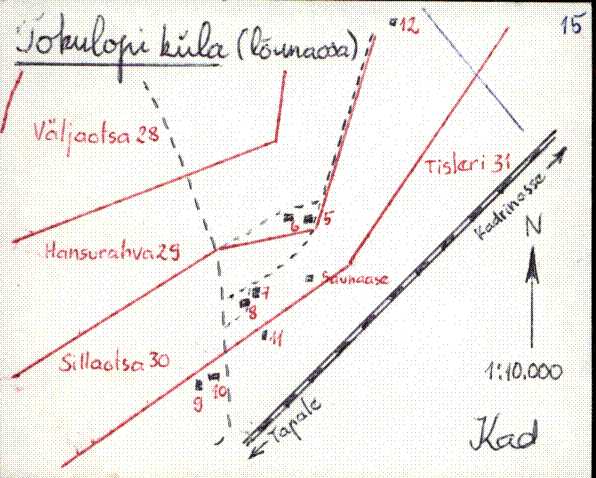 Tokulopi küla (lõunaosa)
15
12
Väljaotsa 28
Tisleri 31
Kadrinasse
6 5
N
Hansurahva 29
Saunaase
7
8
11
Sillaotsa 30
9 10
1:10.000
Tapale
Kad